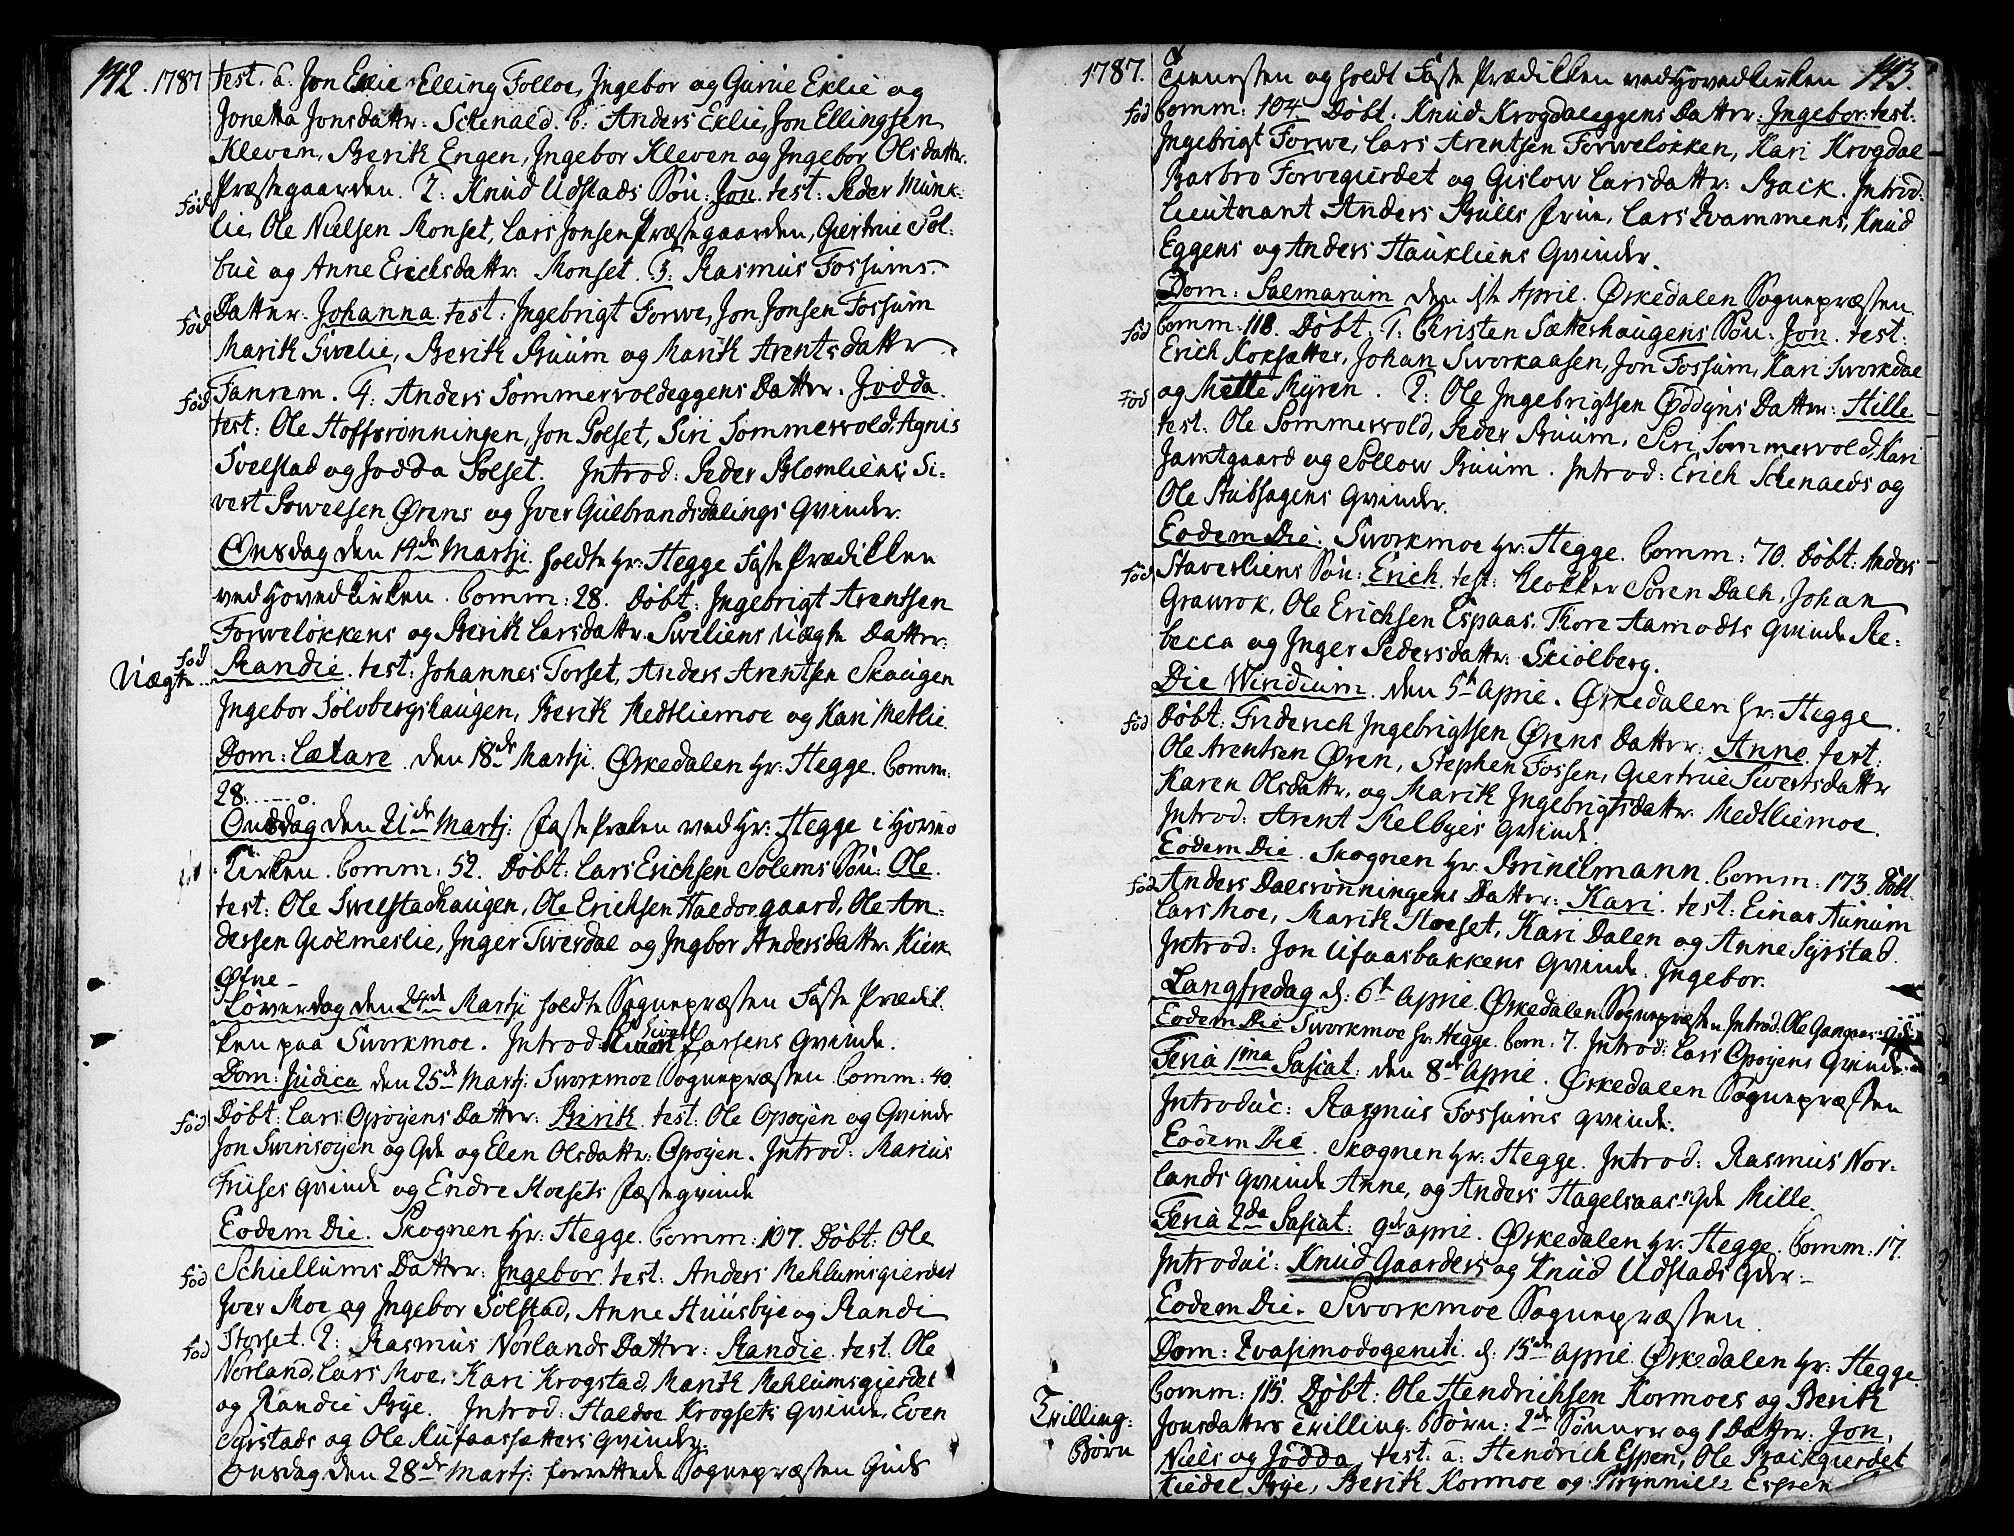 142. 1787
test. a. Jon Eklie, Elling Folloe, Ingebor og Gurue Eklie og
Jonetta Jonsdattr: Schenald. b: Anders Eklie, Jon Ellingsen
Kleven, Berith Engen, Ingebor Kleven og Ingebor Olsdattr.
Præstegaarden. 2: Knud Udstads Søn: Jon. test: Peder Munk-
fød
lie, Ole Nielsen Monset, Lars Jonsen Præstegaarden, Giertrue Sol-
bue og Anne Erichsdattr: Monset. 3: Rasmus Fossums
fød
Datter: Johanna. test: Ingebrigt Forwe, Jon Jonsen Fossum
Marith Swelie, Berith Buum og Marith Arentsdattr
fød
Fanrem. 4: Anders Sommervoldeggens Datter. Jodda.
test: Ole Hoffsrønningen, Jon Solset, Siri Sommervold, Agnis
Svelstad og Jodda Solset. Introd: Peder Blomliens, Si-
vert Powelsen Ørens og Iver Gulbrandsdalings Qvinder.
Onsdag den 14de Martji holdte Hr: Hegge Faste Prædikken
ved Hovedkirken. Comm: 28. Døbt: Ingebrigt Arentsen
Forweløkkens og Berith Larsdattr. Sweliens Uægte Datter:
fød
Uægte
Randie. test: Johannes Torset, Anders Arentsen Skaugen
Ingebor Sølvbergshaugen, Berith Medtliemoe og Kari Metlie.
Dom: Lætare den 18de Martji. Ørkedalen Hr: Hegge. Comm:
28.
Onsdag den 21de Martji: Faste Præken ved Hr: Hegge i Hoved
Kirken. Comm: 52. Døbt: Lars Erichsen Solems Søn: Ole.
test: Ole Swelstadhaugen, Ole Erichsen Haldoegaard, Ole An-
dersen Giølmeslie, Inger Twerdal og Ingbor Andersdattr. Kiere
Øfne
Løverdag den 24de Martji holdte Sognepræsten Faste Prædik-
ken paa Sworkmoe. Introd: Sivert Larsens Qvinde.
Dom: Judica den 25de Martji Sworkmoe Sognepræsten Comm: 40.
fød
Døbt: Lars Opøyens Datter: Berith. test: Ole Opøyen og Qvinde
Jon Swinsøyen og Qde og Elen Olsdattr: Opøyen. Introd: Marius
Friises Qvinde og Endre Moesets Fæsteqvinde
Eodem Die. Skognen Hr: Hegge. Comm: 107. Døbt: Ole
fød
Schiellums Datter: Ingebor. test: Anders Mehlumsgierdet
Iver Moe og Ingebor Solstad, Anne Huusbye og Randi
fød
Storset. 2: Rasmus Norlands Datter: Randie. test. Ole
Norland, Lars Moe, Kari Krogstad, Marith Mehlumsgierdet
og Randie Bye. Introd: Haldoe Krogsets Qvinde, Even
Syrstads og Ole Rufaassætters Qvinder.
Onsdag den 28de Martji: forrettede Sognepræsten Guds
1787. 143.
Tienesten og holdt Faste Prædikken ved Hovedkirken
fød
Comm: 104. Døbt. Knud Krogdaleggens Datter: Ingebor. test:
Ingebrigt Forwe, Lars Arentsen Forweløkken, Kari Krogdal
Barbro Forvegierdet og Gislow Larsdattr: Baik. Introd:
Lieutnant Anders Bulls Frue, Lars Kvammens, Knud
Eggens og Anders Haukliens Qvinder.
Dom: Palmarum den 1ste April. Ørkedalen Sognepræsten.
fød
Comm: 118. Døbt. 1: Christen Sætterhaugens Søn: Jon. test:
Erich Koksætter, Johan Sworkaasen, Jon Fossum, Kari Sworkdal
fød
og Mette Myren. 2: Ole Ingebrigtsen Oddyns Datter: Hille
test: Ole Sommervold, Peder Buum, Siri Sommervold, Kari
Jamtgaard og Sollow Buum. Introd: Erich Schenalds og
Ole Stubhagens Qvinder.
Eodem Die: Sworkmoe Hr: Hegge. Comm: 70. Døbt: Anders
fød
Staverliens Søn: Erich. test: Klokker Søren Dalh, Johan
Grawrok, Ole Erichsen Espaas, Thore Aamodts Qvinde Re-
becca og Inger Pedersdattr: Skiølberg.
Die Wiridium. den 5te Aprie. Ørkedalen Hr: Hegge.
fød
Døbt: Friderich Ingebrigtsen Ørens Datter: Anne. test:
Ole Arentsen Øren, Stephen Fossen, Giertrue Siwertsdattr
Karen Olsdattr. og Marith Ingebrigtsdattr. Medtliemoe.
Introd: Arent Melbyes Qvinde.
Eodem Die. Skognen Hr. Brinchmann. Comm: 173. Døbt.
fød
Anders Dalsrønningens Datter: Kari. test: Einar Aunum
Lars Moe, Marith Moeset, Kari Dalen og Anne Syrstad.
Introd: Jon Ufaasbakkens Qvinde. Ingebor.
Langfredag d: 6te Aprie. Ørkedalen Sognepræsten Introd: Ole
Eodem Die Sworkmoe Hr: Hegge. Com: 7. Introd: Lars Opøyens Qvinde.
Feria 1ma Pasjat: den 8de Aprie. Ørkedalen Sognepræsten
Introduc: Rasmus Fossums Qvinde.
Eodem Die. Skognen Hr: Hegge. Introd: Rasmus Nor-
lands Qvinde Anne, og Anders Hagelsaas Qde Mille.
Feria 2da Pasjat: 9de Aprie. Ørkedalen Hr. Hegge. Comm: 17.
Introduc: Knud Gaarders og Knud Udstads Qder.
Eodem Die. Sworkmoe Sognepræsten.
Dom: Qvasimodogeniti. d: 15de Aprie. Ørkedalen Hr: Hegge.
Comm: 115. Døbt: Ole Hendrichsen Kormoes og Berith
Trilling:
Børn
Jonsdatters Trilling-Børn: 2de Sønner og 1 Datter: Jon,
Niels og Jødda. test: a: Hendrich Espen, Ole Baikgierdet
Kieldel Bye, Berith Kormoe og Brynnille Espen